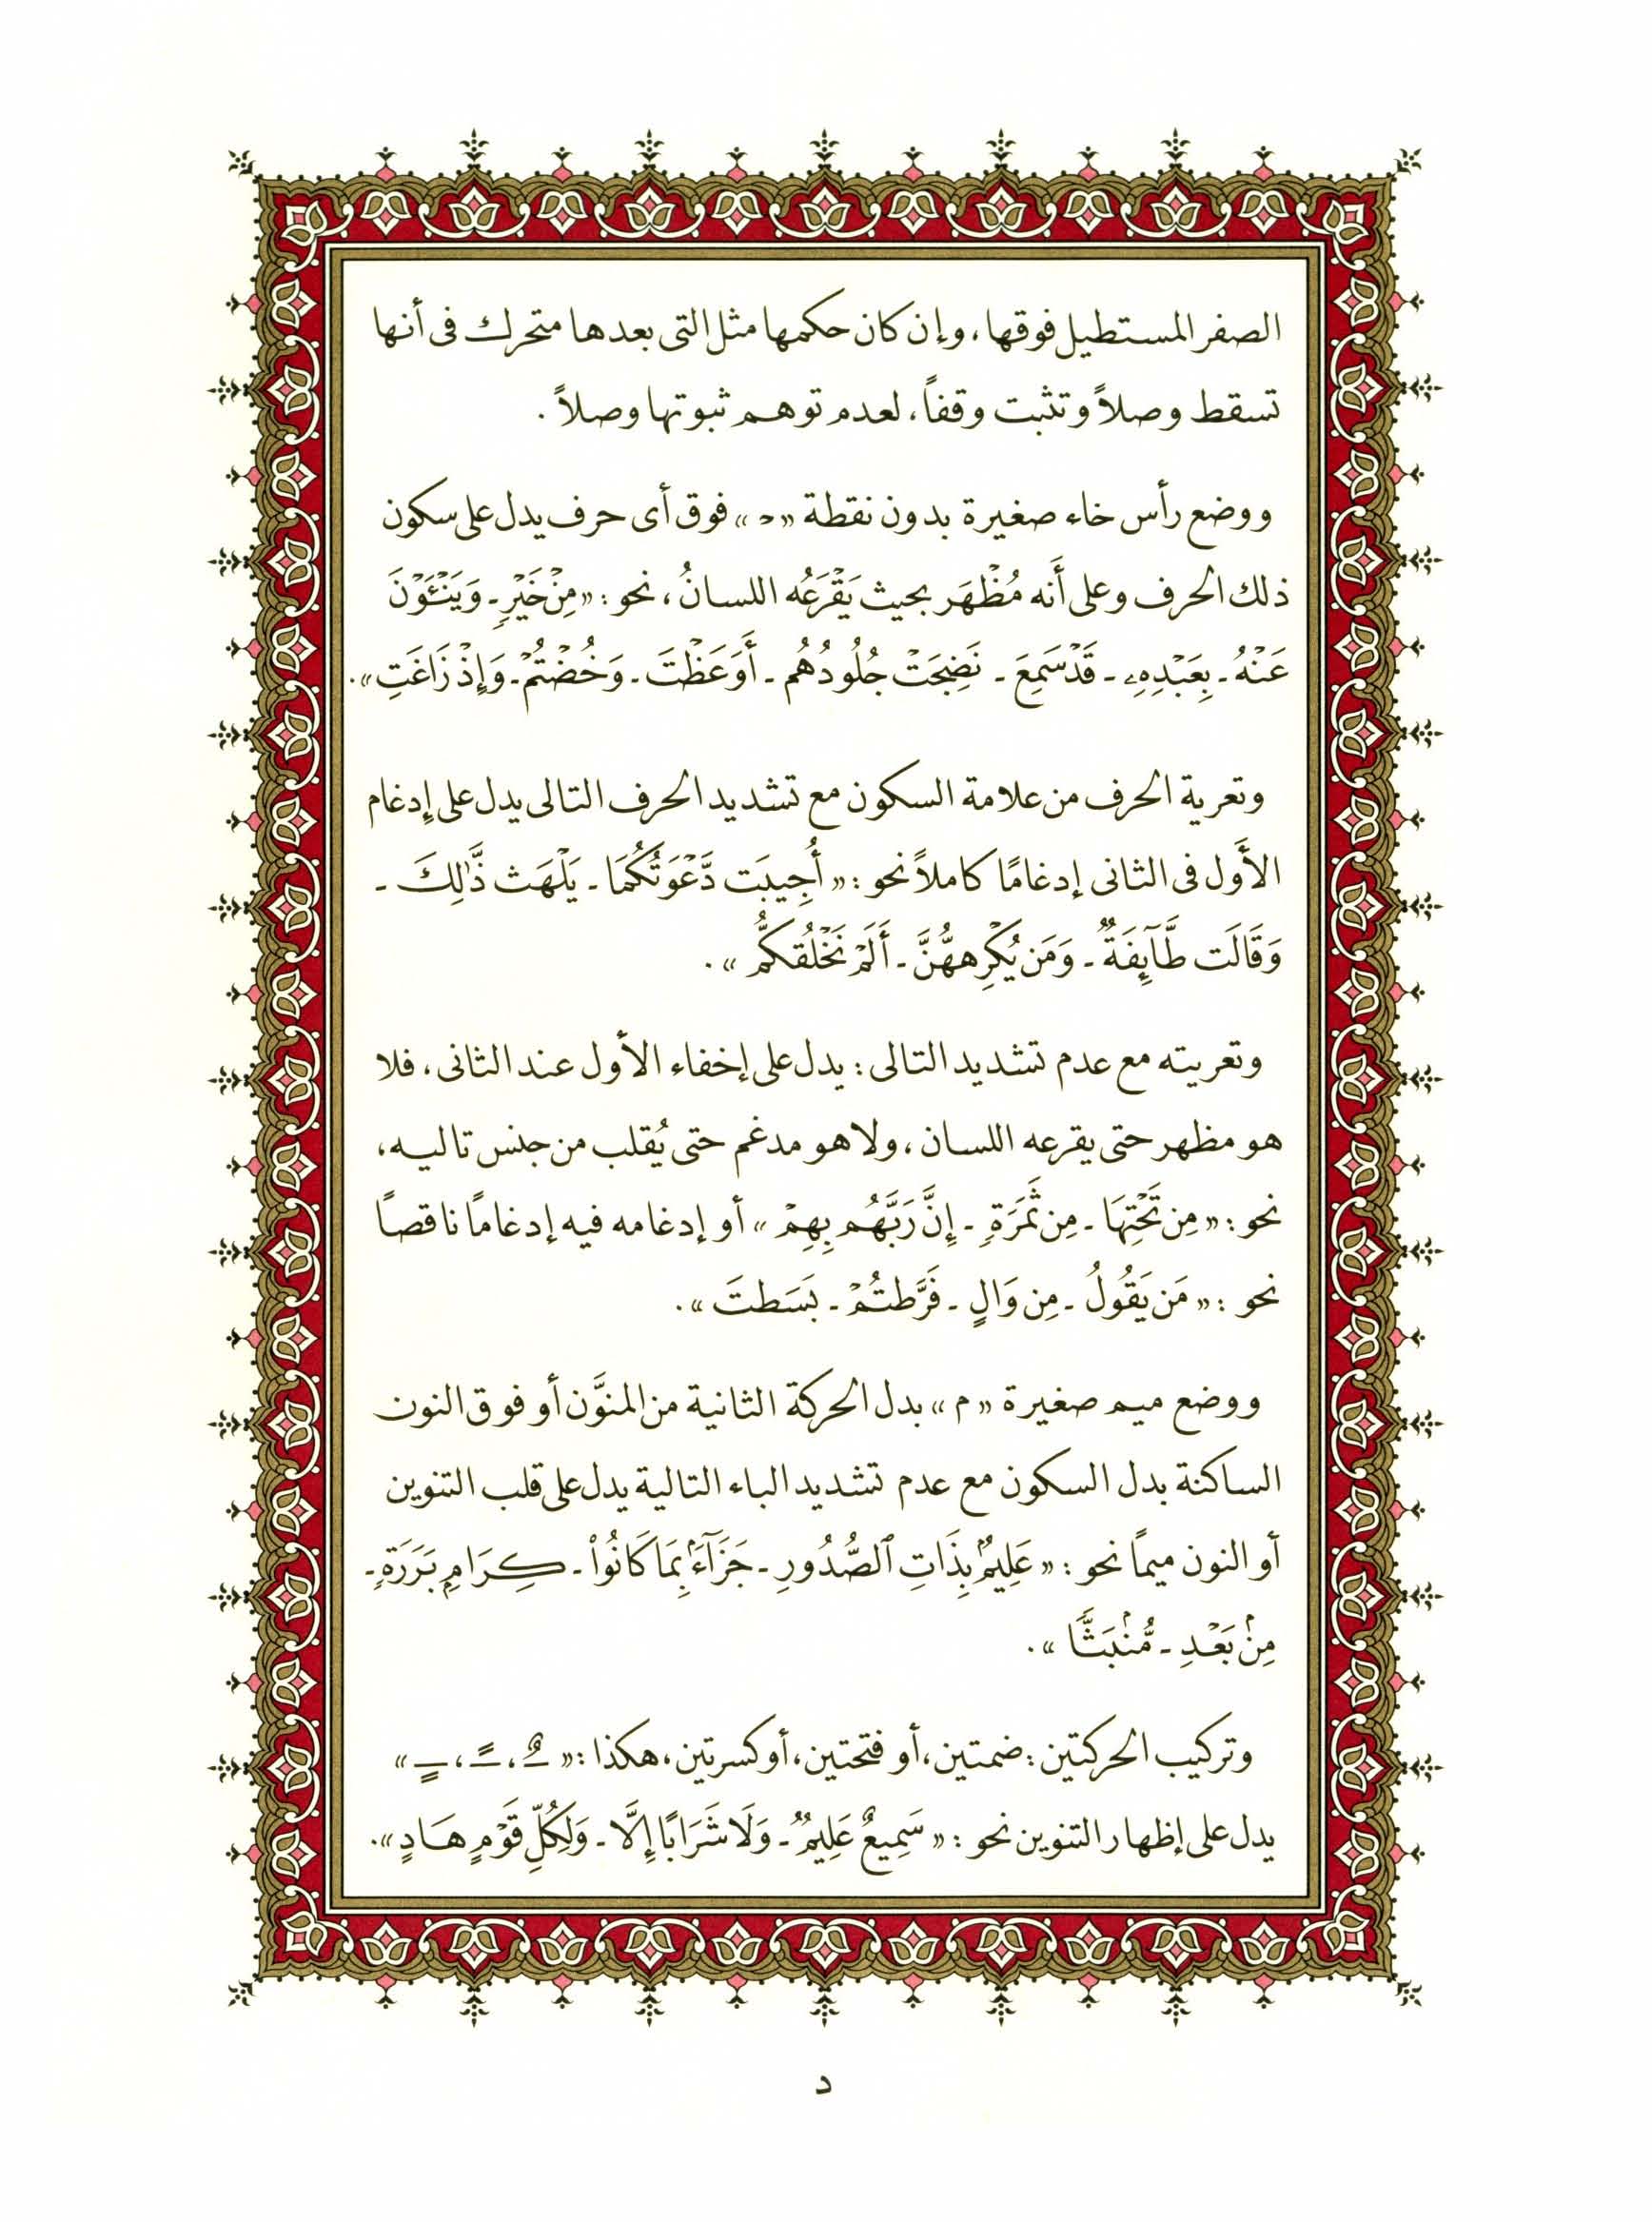 الصفر المستطيل فوقها، وإن كان حكمها مثل التى بعدها متحرك فى أنها
تسقط وصلاً وتثبت وقفاً، لعدم توهم ثبوتها وصلاً.
ووضع رأس خاء صغيرة بدون نقطة «ۡ» فوق أى حرف يدل على سكون
ذلك الحرف وعلى أَنه مُظْهَر بحيث يَقْرَعُه اللسانُ، نحو: «مِنۡ خَيۡرٖ ـ وَيَنۡـَٔوۡنَ
عَنۡهُ ـ بِعَبۡدِهِۦ ـ قَدۡ سَمِعَ ـ نَضِجَتۡ جُلُودُهُم ـ أَوَعَظۡتَ ـ وَخُضۡتُمۡ ـ وَإِذۡ زَاغَتِ».
وتعرية الحرف من علامة السكون مع تشديد الحرف التالى يدل على إِدغام
الأَول فى الثانى إدغامًا كاملاً نحو: «أُجِيبَت دَّعۡوَتُكُمَا ـ يَلۡهَث ذَّٰلِكَ ـ
وَقَالَت طَّآئِفَةٞ ـ وَمَن يُكۡرِههُّنَّ ـ أَلَمۡ نَخۡلُقكُّم».
وتعريته مع عدم تشديد التالى: يدل على إخفاء الأول عند الثانى، فلا
هو مظهر حتى يقرعه اللسان، ولا هو مدغم حتى يُقلب من جنس تاليه،
نحو: «مِن تَحۡتِهَا ـ مِن ثَمَرَةٖ ـ إِنَّ رَبَّهُم بِهِمۡ» أو إدغامه فيه إدغاماً ناقصاً
نحو: «مَن يَقُولُ ـ مِن وَالٍ ـ فَرَّطتُمۡ ـ بَسَطتَ».
ووضع ميم صغيرة «م» بدل الحركة الثانية من المنوَّن أو فوق النون
الساكنة بدل السكون مع عدم تشديد الباء التالية يدل على قلب التنوين
أو النون ميماً نحو: «عَلِيمُۢ بِذَاتِ ٱلصُّدُورِ ـ جَزَآءَۢ بِمَا كَانُواْ ـ كِرَامِۭ بَرَرَةٖ ـ
مِنۢ بَعۡدِ ـ مُّنۢبَثّٗا».
وتركيب الحركتين: ضمتين، أو فتحتين، أو كسرتين، هكذا: «ـٌ، ـً، ـٍ»
يدل على إظهار التنوين نحو: «سَمِيعٌ عَلِيمٞ ـ وَلَا شَرَابًا إِلَّا ـ وَلِكُلِّ قَوۡمٍ هَادٍ».
د